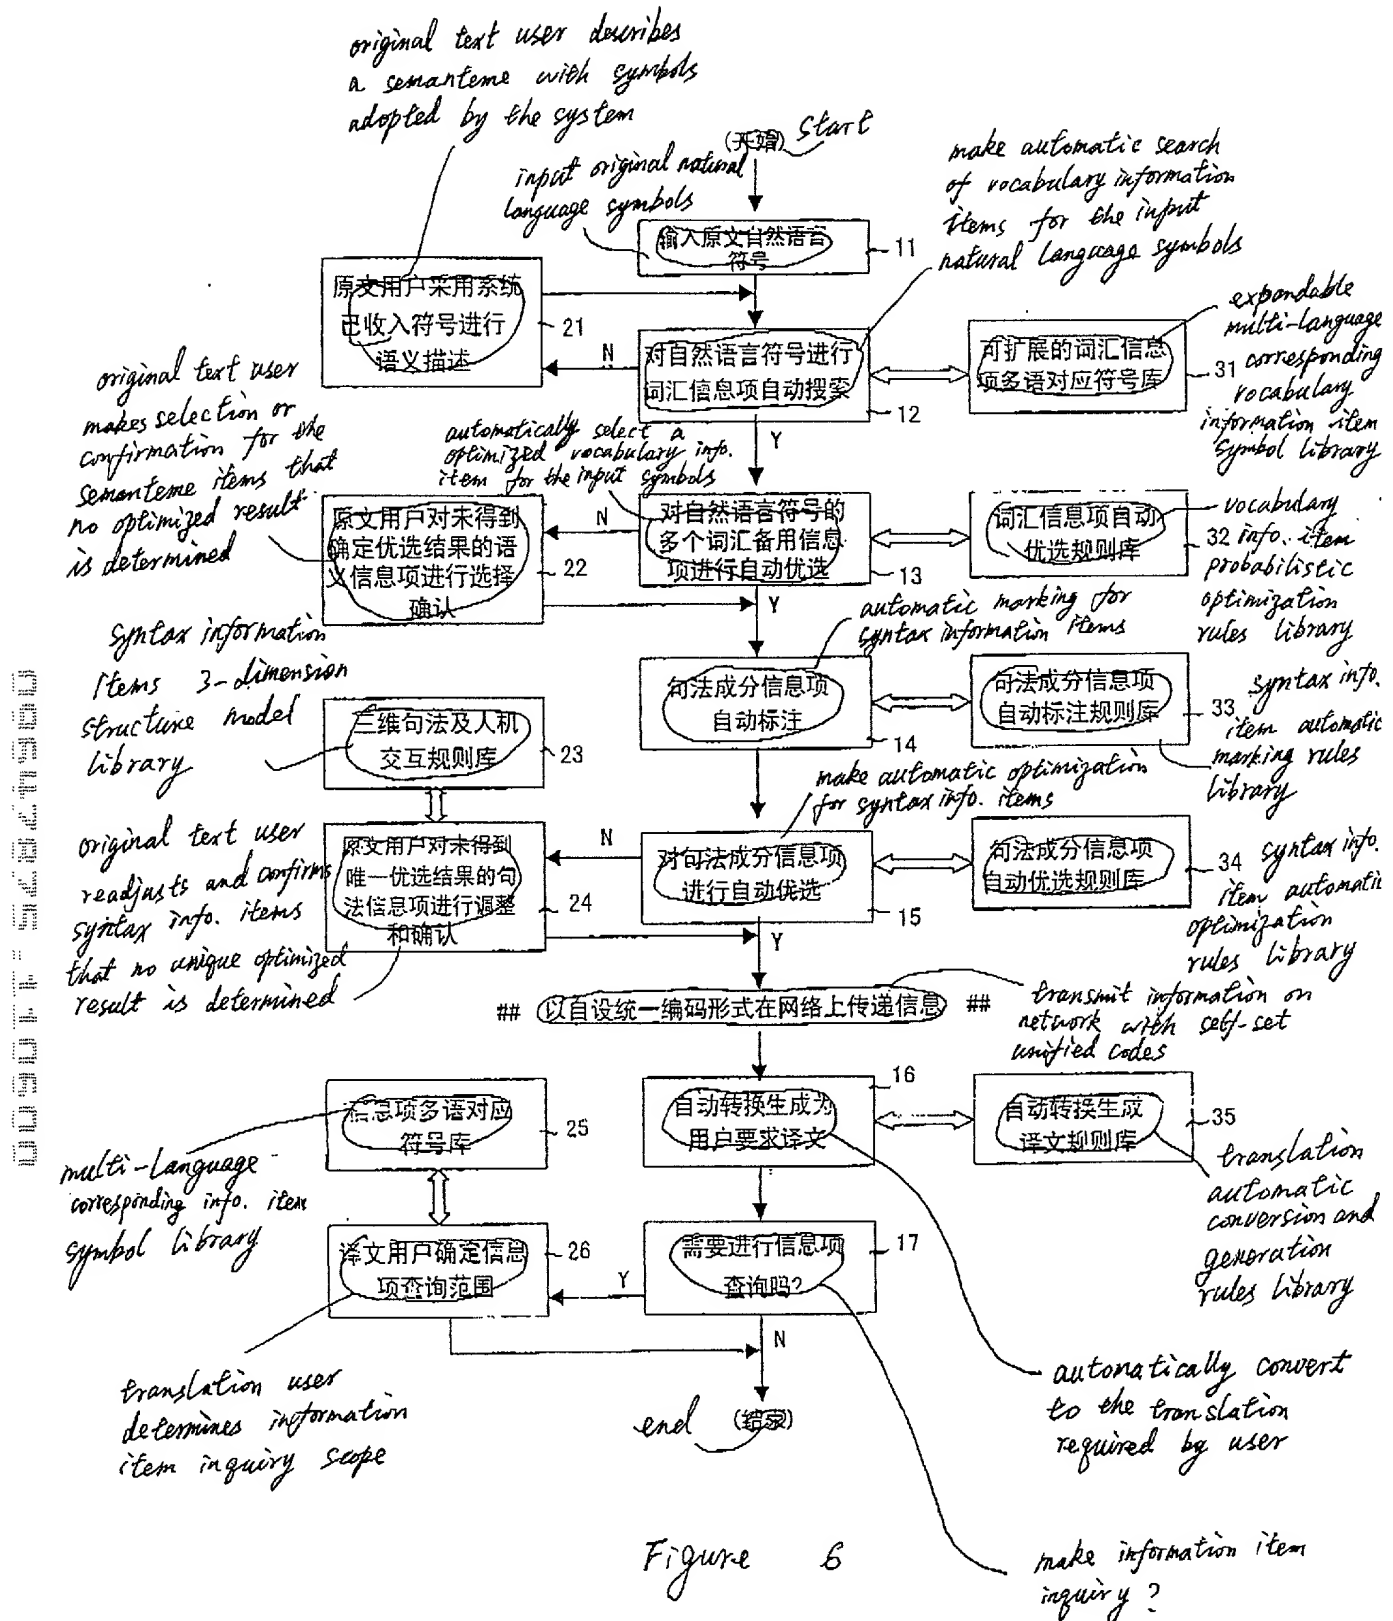 original text user describes
a semanteme with symbols
adopted by the system
(开始)
start
input original natural
language symbols
make automatic search
of vocabulary information
items for the input
natural language symbols
输入原文自然语言
符号
11
原文用户采用系统
已收入符号进行
语义描述
21
N
对自然语言符号进行
词汇信息项自动搜索
12
可扩展的词汇信息
项多语对应符号库
31
expandable
multi-language
corresponding
vocabulary
information item
symbol library
Y
original text user
makes selection or
confirmation for the
semanteme items that
no optimized result
is determined
automatically select a
optimized vocabulary info.
item for the input symbols
原文用户对未得到
确定优选结果的语
义信息项进行选择
确认
22
N
对自然语言符号的
多个词汇备用信息
项进行自动优选
13
词汇信息项自动
优选规则库
32
vocabulary
info. item
probabilistic
optimization
rules library
Y
automatic marking for
syntax information items
syntax information
items 3-dimension
structure model
library
三维句法及人机
交互规则库
23
句法成分信息项
自动标注
14
句法成分信息项
自动标注规则库
33
syntax info.
item automatic
marking rules
library
make automatic optimization
for syntax info. items
original text user
readjusts and confirms
syntax info. items
that no unique optimized
result is determined
原文用户对未得到
唯一优选结果的句
法信息项进行调整
和确认
24
N
对句法成分信息项
进行自动优选
15
句法成分信息项
自动优选规则库
34
syntax info.
item automatic
optimization
rules library
Y
## 以自设统一编码形式在网络上传递信息 ##
transmit information on
network with self-set
unified codes
信息项多语对应
符号库
25
16
自动转换生成为
用户要求译文
自动转换生成
译文规则库
35
multi-language
corresponding info. item
symbol library
translation
automatic
conversion and
generation
rules library
译文用户确定信息
项查询范围
26
Y
需要进行信息项
查询吗?
17
N
translation user
determines information
item inquiry scope
end
(结束)
automatically convert
to the translation
required by user
Figure 6
make information item
inquiry ?